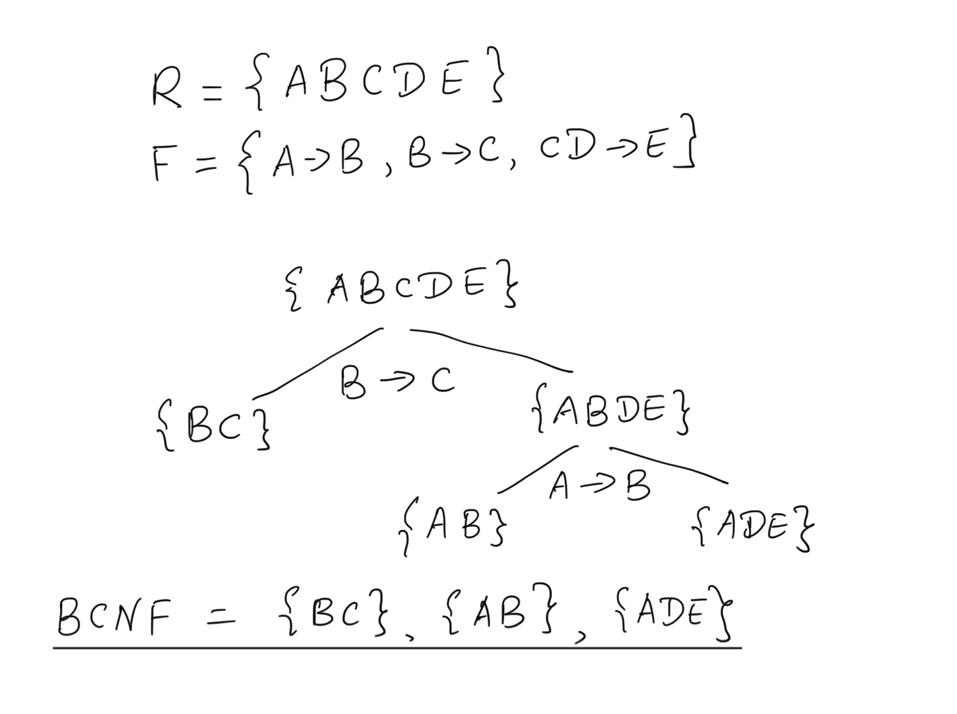 R = {ABCDE}
F = {A→B, B→C, CD→E}
{ABCDE}
B→C
{BC} {ABDE}
A→B
{AB} {ADE}
BCNF = {BC}, {AB}, {ADE}